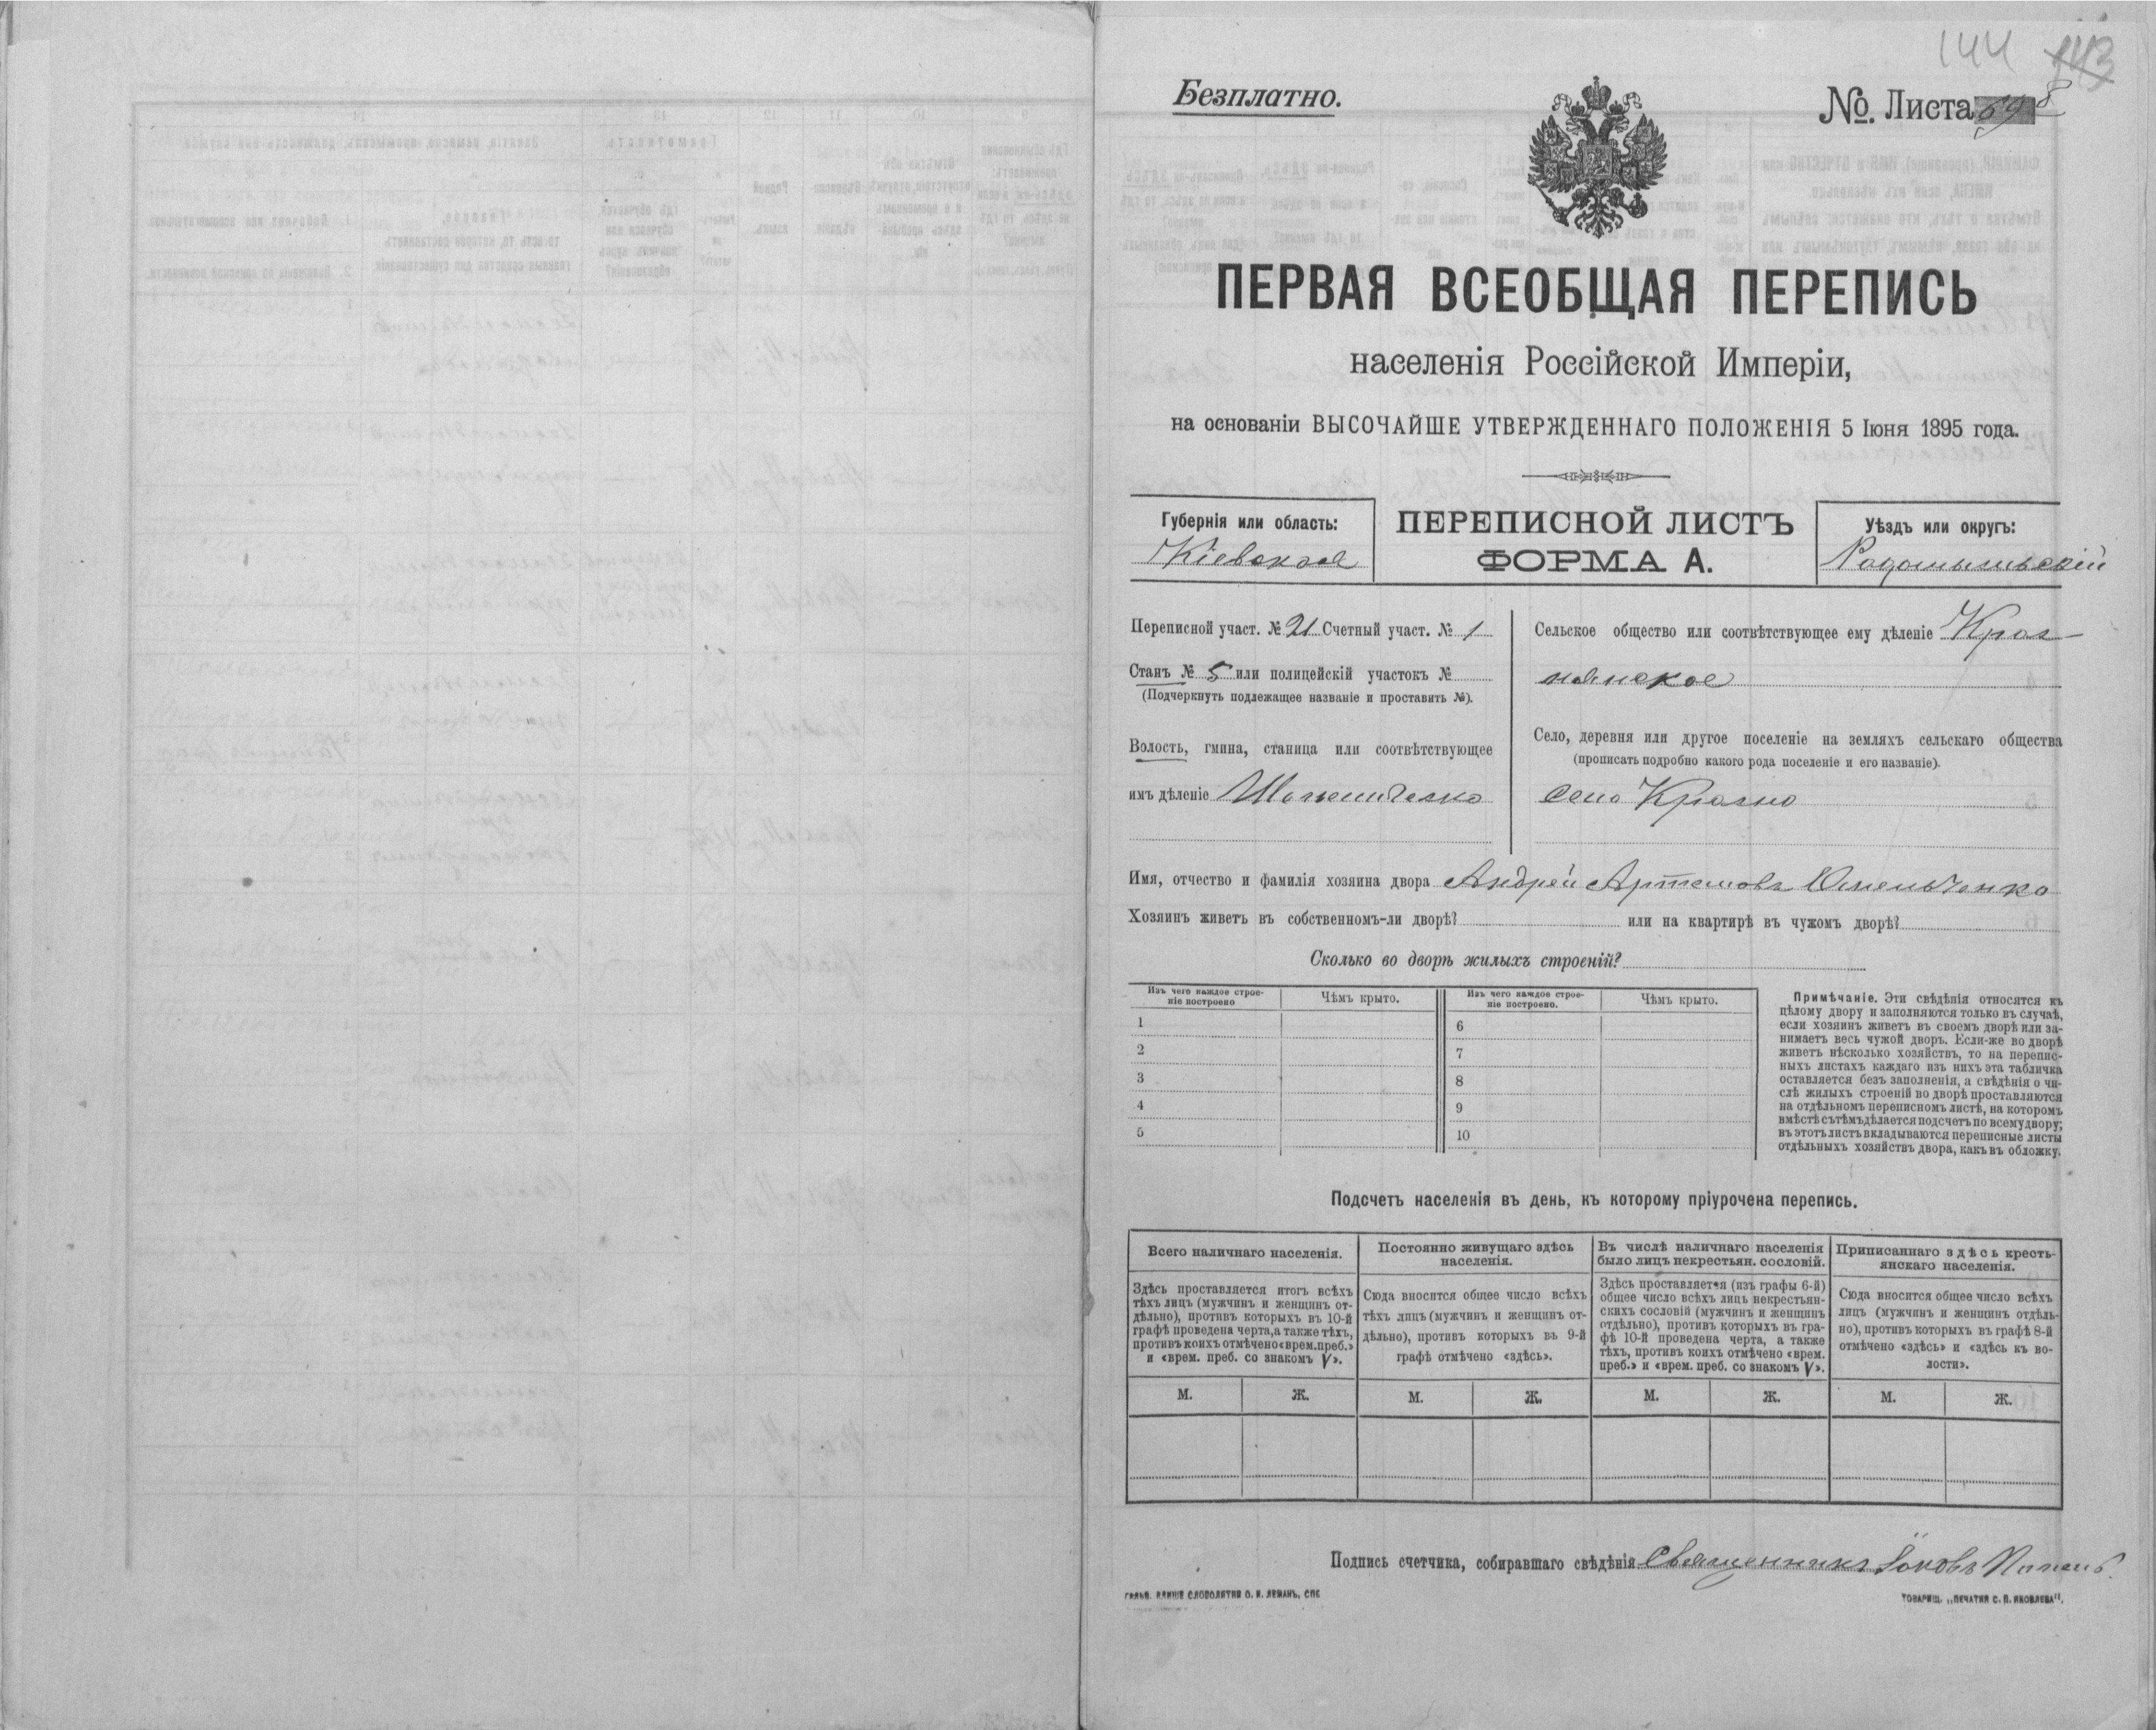 144 143
Безплатно.
№. Листа 698
ПЕРВАЯ ВСЕОБЩАЯ ПЕРЕПИСЬ
населенія Россійской Имперіи,
на основаніи ВЫСОЧАЙШЕ УТВЕРЖДЕННАГО ПОЛОЖЕНІЯ 5 Іюня 1895 года.
Губернія или область:
Кіевская
ПЕРЕПИСНОЙ ЛИСТЪ
ФОРМА А.
Уѣздъ или округъ:
Радомысльскій
Переписной участ. № 21 Счетный участ. № 1
Станъ № 5 или полицейскій участокъ №
(Подчеркнуть подлежащее названіе и проставить №).
Волость, гмина, станица или соотвѣтствующее
имъ дѣленіе
Сельское общество или соотвѣтствующее ему дѣленіе Крас-
нянское
Село, деревня или другое поселеніе на земляхъ сельскаго общества
(прописать подробно какого рода поселеніе и его названіе).
село Красно
Имя, отчество и фамилія хозяина двора Андрей Артемовъ Омельченко
Хозяинъ живетъ въ собственномъ-ли дворѣ? или на квартирѣ въ чужомъ дворѣ?
Сколько во дворѣ жилыхъ строеній?
Изъ чего каждое строе-
ніе построено
Чѣмъ крыто.
Изъ чего каждое строе-
ніе построено.
Чѣмъ крыто.
1 6
2 7
3 8
4 9
5 10
Примѣчаніе. Эти свѣдѣнія относятся къ
цѣлому двору и заполняются только въ случаѣ,
если хозяинъ живетъ въ своемъ дворѣ или за-
нимаетъ весь чужой дворъ. Если-же во дворѣ
живетъ нѣсколько хозяйствъ, то на перепис-
ныхъ листахъ каждаго изъ нихъ эта табличка
оставляется безъ заполненія, а свѣдѣнія о чи-
слѣ жилыхъ строеній во дворѣ проставляются
на отдѣльномъ переписномъ листѣ, на которомъ
вмѣстѣ съ тѣмъ дѣлается подсчетъ по всему двору;
въ этотъ листъ вкладываются переписные листы
отдѣльныхъ хозяйствъ двора, какъ въ обложку.
Подсчетъ населенія въ день, къ которому пріурочена перепись.
Всего наличнаго населенія.
Здѣсь проставляется итогъ всѣхъ
тѣхъ лицъ (мужчинъ и женщинъ от-
дѣльно), противъ которыхъ въ 10-й
графѣ проведена черта, а также тѣхъ,
противъ коихъ отмѣчено «врем. преб.»
и «врем. преб. со знакомъ V».
Постоянно живущаго здѣсь
населенія.
Сюда вносится общее число всѣхъ
тѣхъ лицъ (мужчинъ и женщинъ от-
дѣльно), противъ которыхъ въ 9-й
графѣ отмѣчено «здѣсь».
Въ числѣ наличнаго населенія
было лицъ некрестьян. сословій.
Здѣсь проставляется (изъ графы 6-й)
общее число всѣхъ лицъ некрестьян-
скихъ сословій (мужчинъ и женщинъ
отдѣльно), противъ которыхъ въ гра-
фѣ 10-й проведена черта, а также
тѣхъ, противъ коихъ отмѣчено «врем.
преб.» и «врем. преб. со знакомъ V».
Приписаннаго здѣсь кресть-
янскаго населенія.
Сюда вносится общее число всѣхъ
лицъ (мужчинъ и женщинъ отдѣль-
но), противъ которыхъ въ графѣ 8-й
отмѣчено «здѣсь» и «здѣсь къ во-
лости».
М. Ж. М. Ж. М. Ж. М. Ж.
Подпись счетчика, собиравшаго свѣдѣнія Священникъ Іаковъ
СЛОВОЛИТНИ О. И. ЛЕМАНЪ, СПБ
ТОВАРИЩ. „ПЕЧАТНЯ С. П. ЯКОВЛЕВА“.